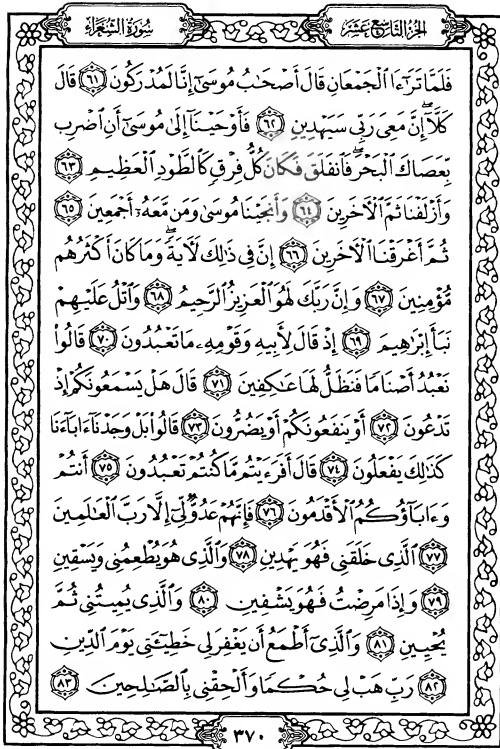 سُورَةُ الشُّعَرَاءِ
الجُزءُ التَّاسِعَ عَشَرَ
فَلَمَّا تَرَٰٓءَا ٱلْجَمْعَانِ قَالَ أَصْحَٰبُ مُوسَىٰٓ إِنَّا لَمُدْرَكُونَ ٦١ قَالَ
كَلَّآ ۖ إِنَّ مَعِىَ رَبِّى سَيَهْدِينِ ٦٢ فَأَوْحَيْنَآ إِلَىٰ مُوسَىٰٓ أَنِ ٱضْرِب
بِّعَصَاكَ ٱلْبَحْرَ ۖ فَٱنفَلَقَ فَكَانَ كُلُّ فِرْقٍ كَٱلطَّوْدِ ٱلْعَظِيمِ ٦٣
وَأَزْلَفْنَا ثَمَّ ٱلْءَاخَرِينَ ٦٤ وَأَنجَيْنَا مُوسَىٰ وَمَن مَّعَهُۥٓ أَجْمَعِينَ ٦٥
ثُمَّ أَغْرَقْنَا ٱلْءَاخَرِينَ ٦٦ إِنَّ فِى ذَٰلِكَ لَءَايَةً ۖ وَمَا كَانَ أَكْثَرُهُم
مُّؤْمِنِينَ ٦٧ وَإِنَّ رَبَّكَ لَهُوَ ٱلْعَزِيزُ ٱلرَّحِيمُ ٦٨ وَٱتْلُ عَلَيْهِمْ
نَبَأَ إِبْرَٰهِيمَ ٦٩ إِذْ قَالَ لِأَبِيهِ وَقَوْمِهِۦ مَا تَعْبُدُونَ ٧٠ قَالُوا۟
نَعْبُدُ أَصْنَامًا فَنَظَلُّ لَهَا عَٰكِفِينَ ٧١ قَالَ هَلْ يَسْمَعُونَكُمْ إِذْ
تَدْعُونَ ٧٢ أَوْ يَنفَعُونَكُمْ أَوْ يَضُرُّونَ ٧٣ قَالُوا۟ بَلْ وَجَدْنَآ ءَابَآءَنَا
كَذَٰلِكَ يَفْعَلُونَ ٧٤ قَالَ أَفَرَءَيْتُم مَّا كُنتُمْ تَعْبُدُونَ ٧٥ أَنتُمْ
وَءَابَآؤُكُمُ ٱلْأَقْدَمُونَ ٧٦ فَإِنَّهُمْ عَدُوٌّ لِّىٓ إِلَّا رَبَّ ٱلْعَٰلَمِينَ
٧٧ ٱلَّذِى خَلَقَنِى فَهُوَ يَهْدِينِ ٧٨ وَٱلَّذِى هُوَ يُطْعِمُنِى وَيَسْقِينِ
٧٩ وَإِذَا مَرِضْتُ فَهُوَ يَشْفِينِ ٨٠ وَٱلَّذِى يُمِيتُنِى ثُمَّ
يُحْيِينِ ٨١ وَٱلَّذِىٓ أَطْمَعُ أَن يَغْفِرَ لِى خَطِيٓـَٔتِى يَوْمَ ٱلدِّينِ
٨٢ رَبِّ هَبْ لِى حُكْمًا وَأَلْحِقْنِى بِٱلصَّٰلِحِينَ ٨٣
٣٧٠